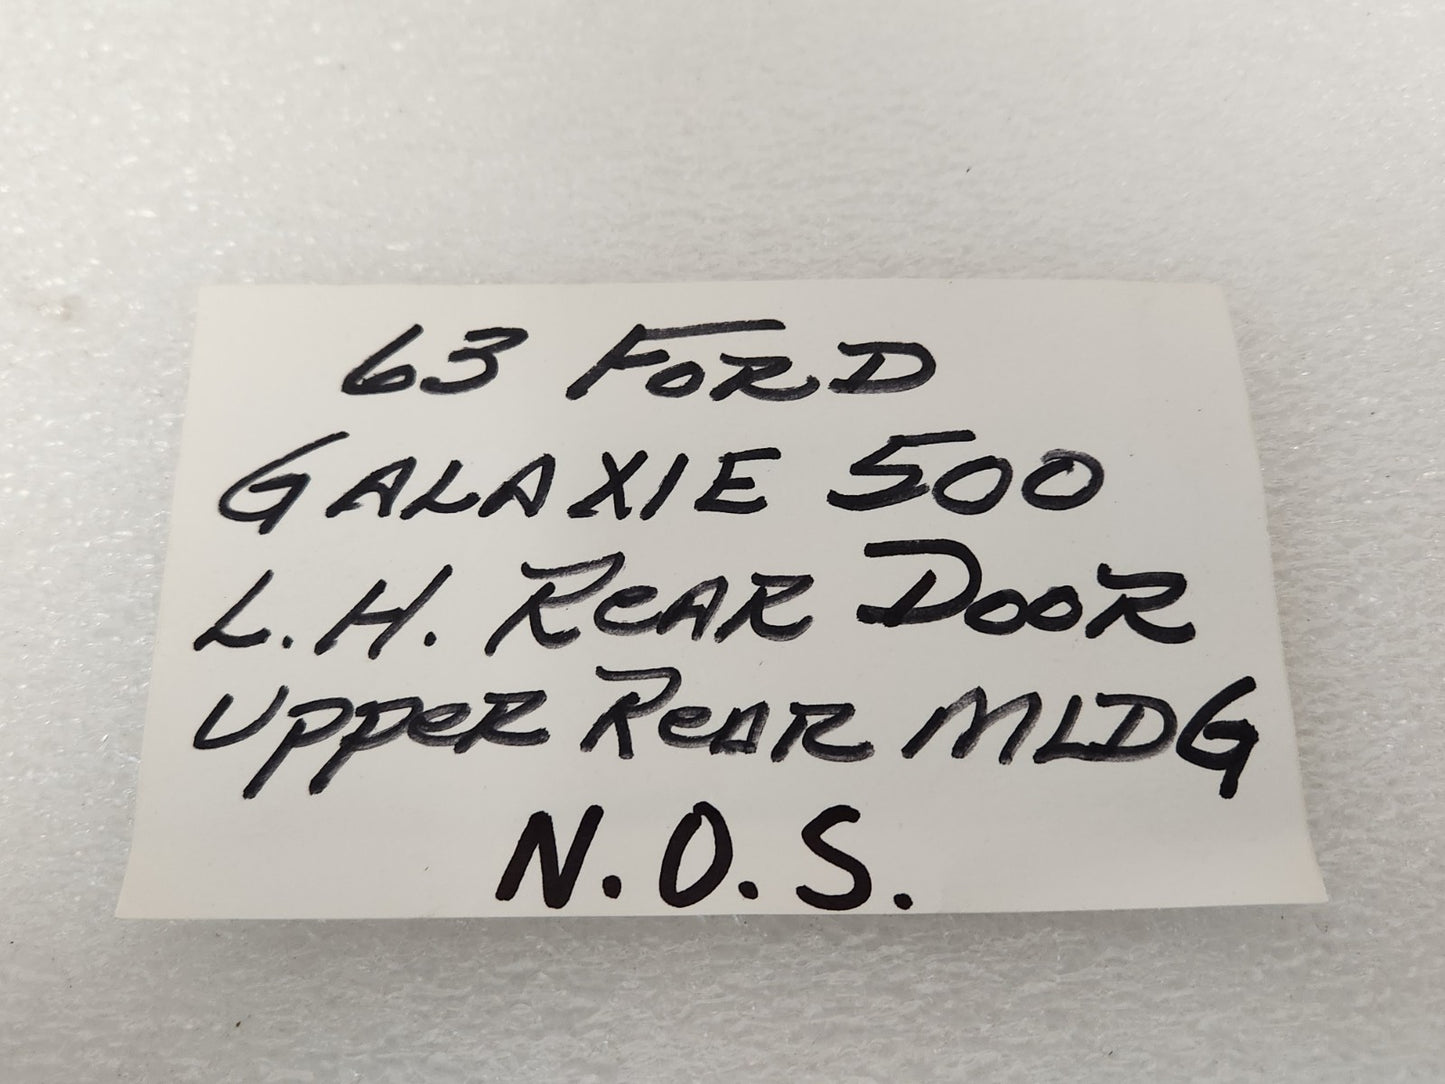 63 FORD
GALAXIE 500
L.H. REAR DOOR
UPPER REAR MLDG
N.O.S.